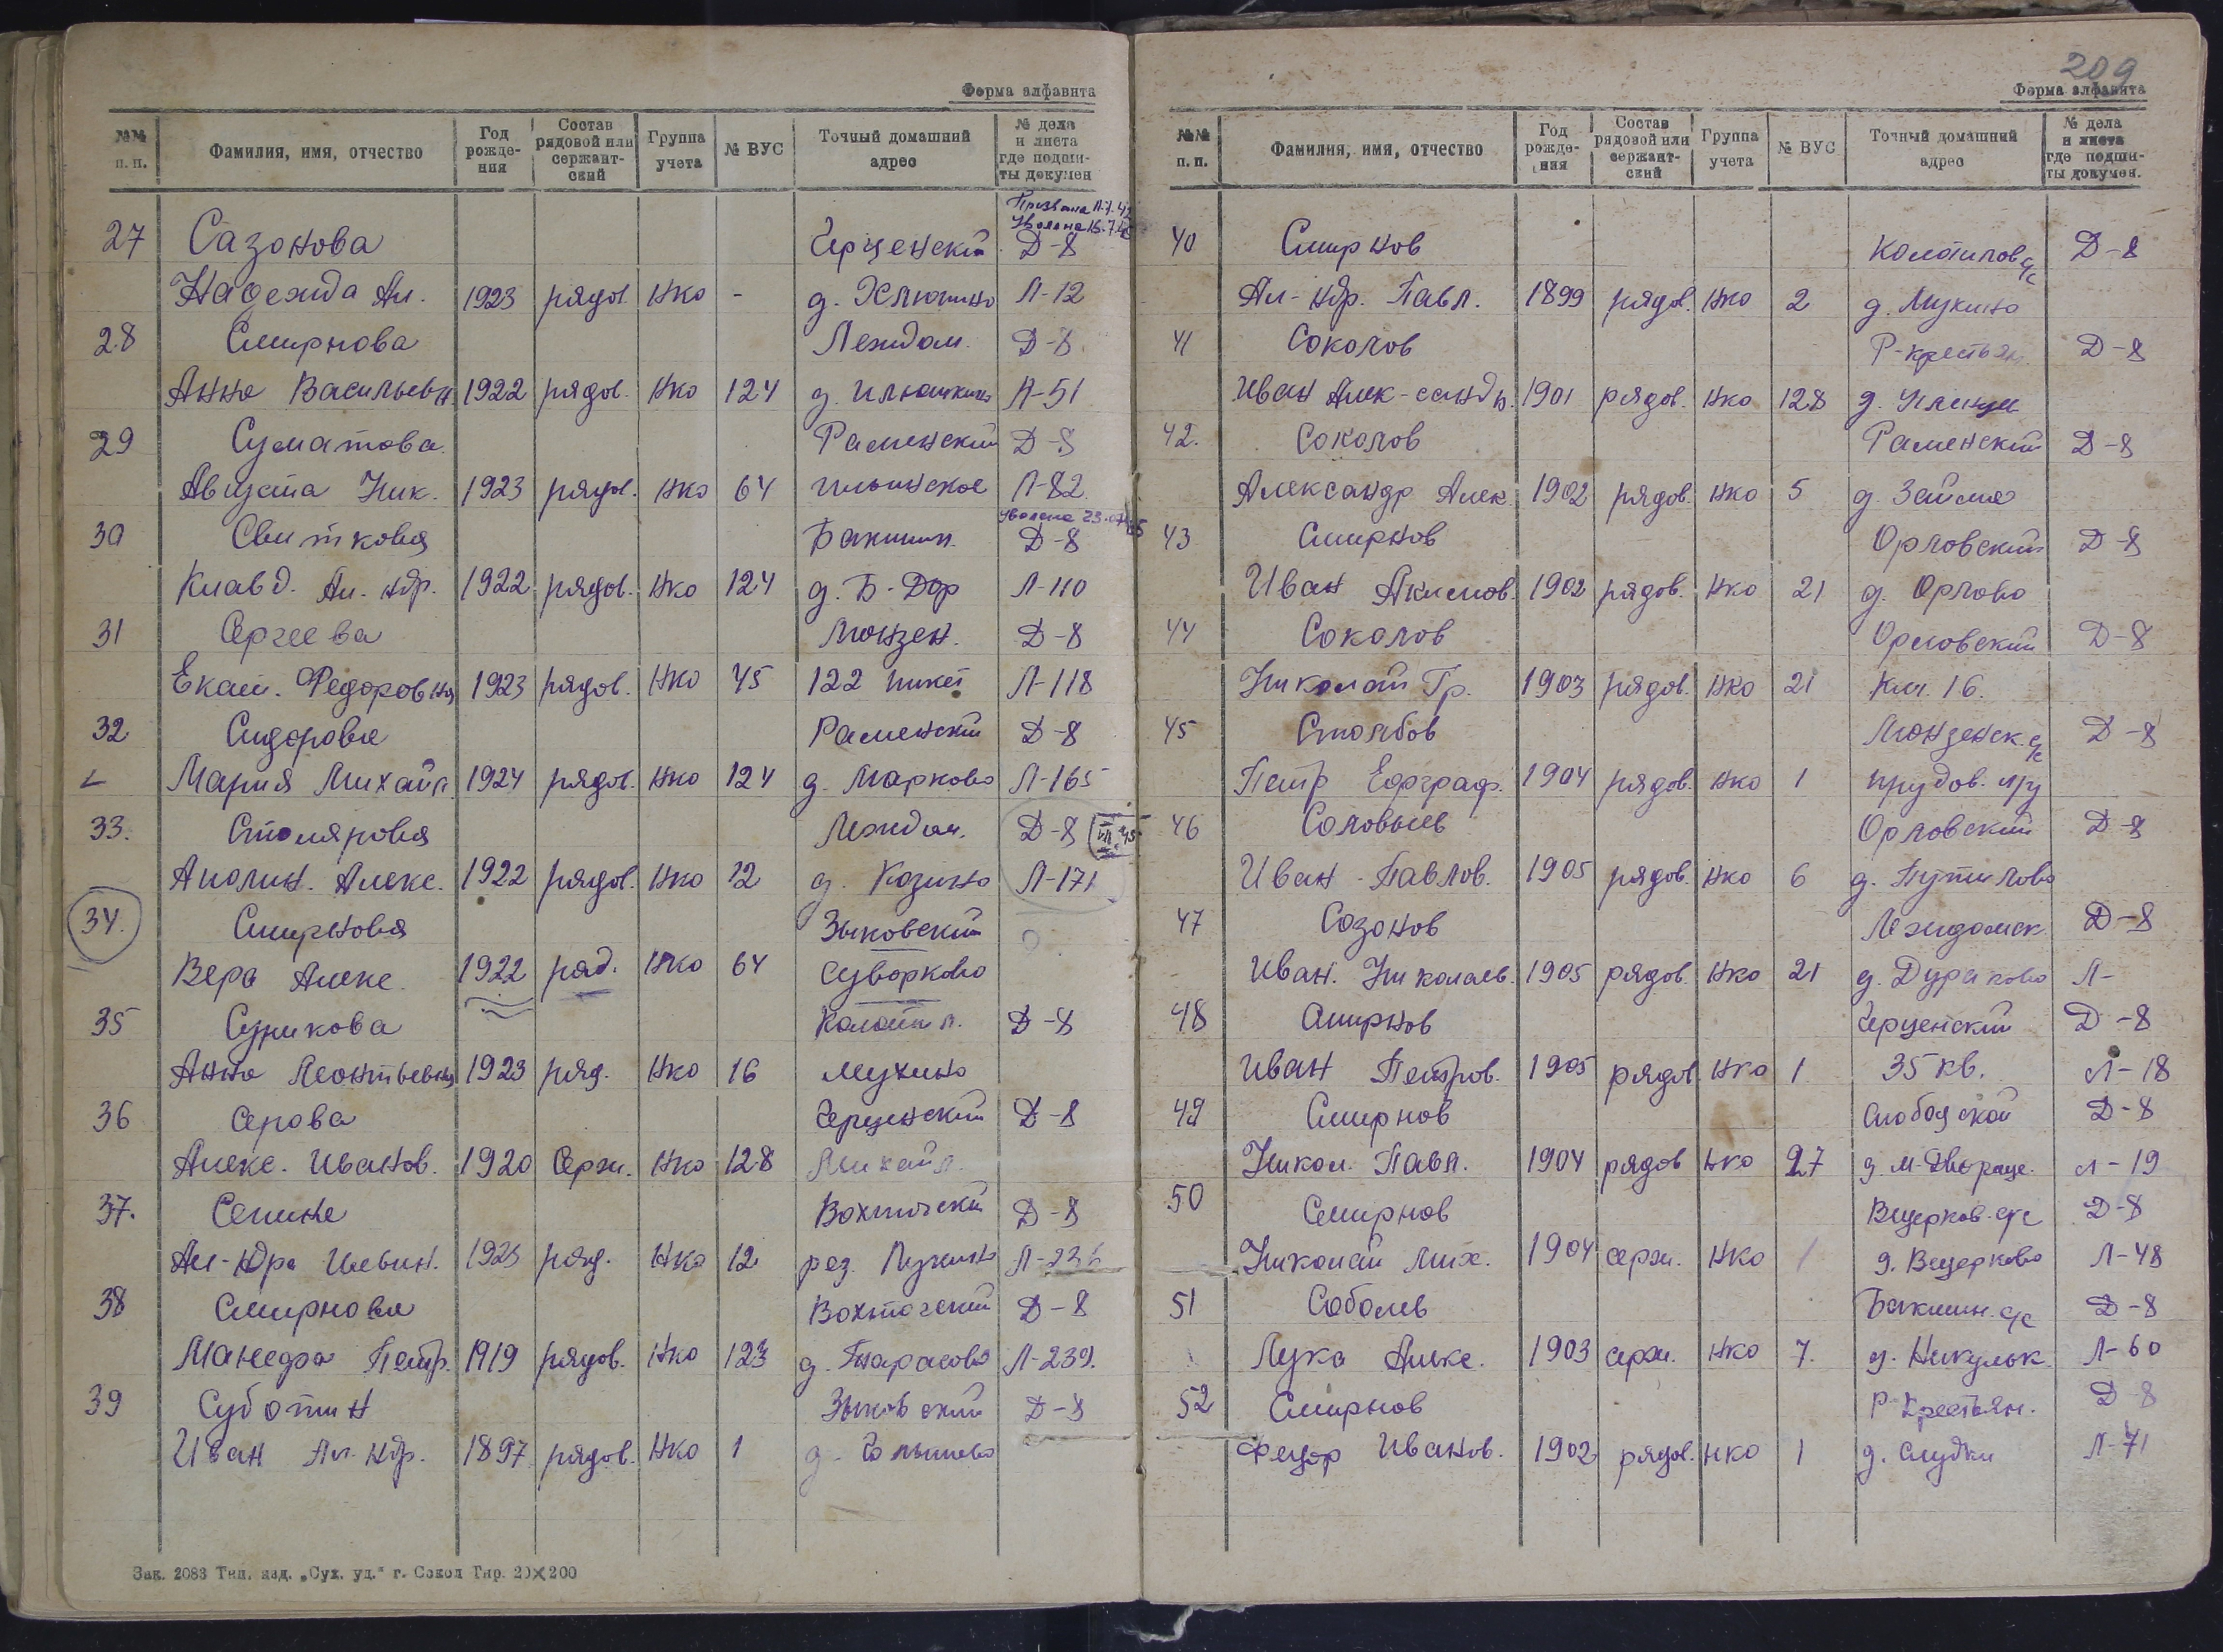 Форма алфавита
№№ п. п. Фамилия, имя, отчество Год рожде-ния Состав рядовой или сержант-ский Группа учета № ВУС Точный домашний адрес № дела и листа где подши-ты докумен
Призвана
Уволена
27 Сазонова Герценский Д-8
Надежда Ал. 1923 рядов. Нко - д. Л-12
28 Смирнова Леждом. Д-8
Анна Васильевн 1922 рядов. Нко 124 д. Илюшкино Л-51
29 Суматова Раменский Д-8
Августа Ник. 1923 рядов. Нко 64 Ильинское Л-82.
Уволена
30 Свиткова Бакшин. Д-8
Клавд. Ал. ндр. 1922 рядов. Нко 124 д. Б-Дор Л-110
31 Сергеева Монзен. Д-8
Екат. Федоровна 1923 рядов. Нко 45 122 пикет Л-118
32 Сидорова Раменский Д-8
Мария Михайл. 1924 рядов. Нко 124 д. Марково Л-165
33. Столярова Леждом. Д-8
Аполин. Алекс. 1922 рядов. Нко 12 д. Козино Л-171
34. Смирнова Зыковский
Вера Алекс. 1922 ряд. Нко 64 Суворково
35 Сурикова Колотил. Д-8
Анна Леонтьевна 1923 ряд. Нко 16 Мухино
36 Серова Герценский Д-8
Алекс. Иванов. 1920 Серж. Нко 128 Михайл.
37. Сепина Вохтожский Д-8
Ал-ндра Ильин. 1923 ряд. Нко 12 раз. Лукино
38 Смирнова Вохтожский Д-8
Манефа Петр. 1919 рядов. Нко 123 д. Тарасово Л-239.
39 Суботин Зыковский Д-8
Иван Ал. ндр. 1897 рядов. Нко 1 д.
Зак. 2083 Тип. изд. „Сух. уд.“ г. Сокол Тир. 20×200
209
Форма алфавита
№№ п. п. Фамилия, имя, отчество Год рожде-ния Состав рядовой или сержант-ский Группа учета № ВУС Точный домашний адрес № дела и листа где подши-ты докумен.
40 Смирнов Колотилов с/с Д-8
Ал-ндр. Павл. 1899 рядов. Нко 2 д. Мукино
41 Соколов Р-крестьян. Д-8
Иван Алек-сандр. 1901 рядов. Нко 128 д.
42. Соколов Раменский Д-8
Александр Алек. 1902 рядов. Нко 5 д. Займа
43 Смирнов Орловский Д-8
Иван Акимов. 1902 рядов. Нко 21 д. Орлово
44 Соколов Орловский Д-8
Николай Гр. 1903 рядов. Нко 21 Км. 16.
45 Столбов Монзенск. с/с Д-8
Петр Евграф. 1904 рядов. Нко 1 прудов. л/у
46 Соловьев Орловский Д-8
Иван Павлов. 1905 рядов. Нко 6 д. Путилово
47 Созонов Леждомск Д-8
Иван. Николаев. 1905 рядов. Нко 21 д. Дураково Л-
48 Смирнов Герценский Д-8
Иван Петров. 1905 рядов Нко 1 35 кв. Л-18
49 Смирнов Слободской Д-8
Никол. Павл. 1904 рядов Нко 27 д. М-Двораце. Л-19
50 Смирнов Вещерков. с/с Д-8
Николай Мих. 1904 серж. Нко 1 д. Вещерково Л-48
51 Соболев Бакшин. с/с Д-8
Лука Алекс. 1903 серж. Нко 7. д. Никульк. Л-60
52 Смирнов Р-крестьян. Д-8
Федор Иванов. 1902 рядов. Нко 1 д. Слудки Л-71